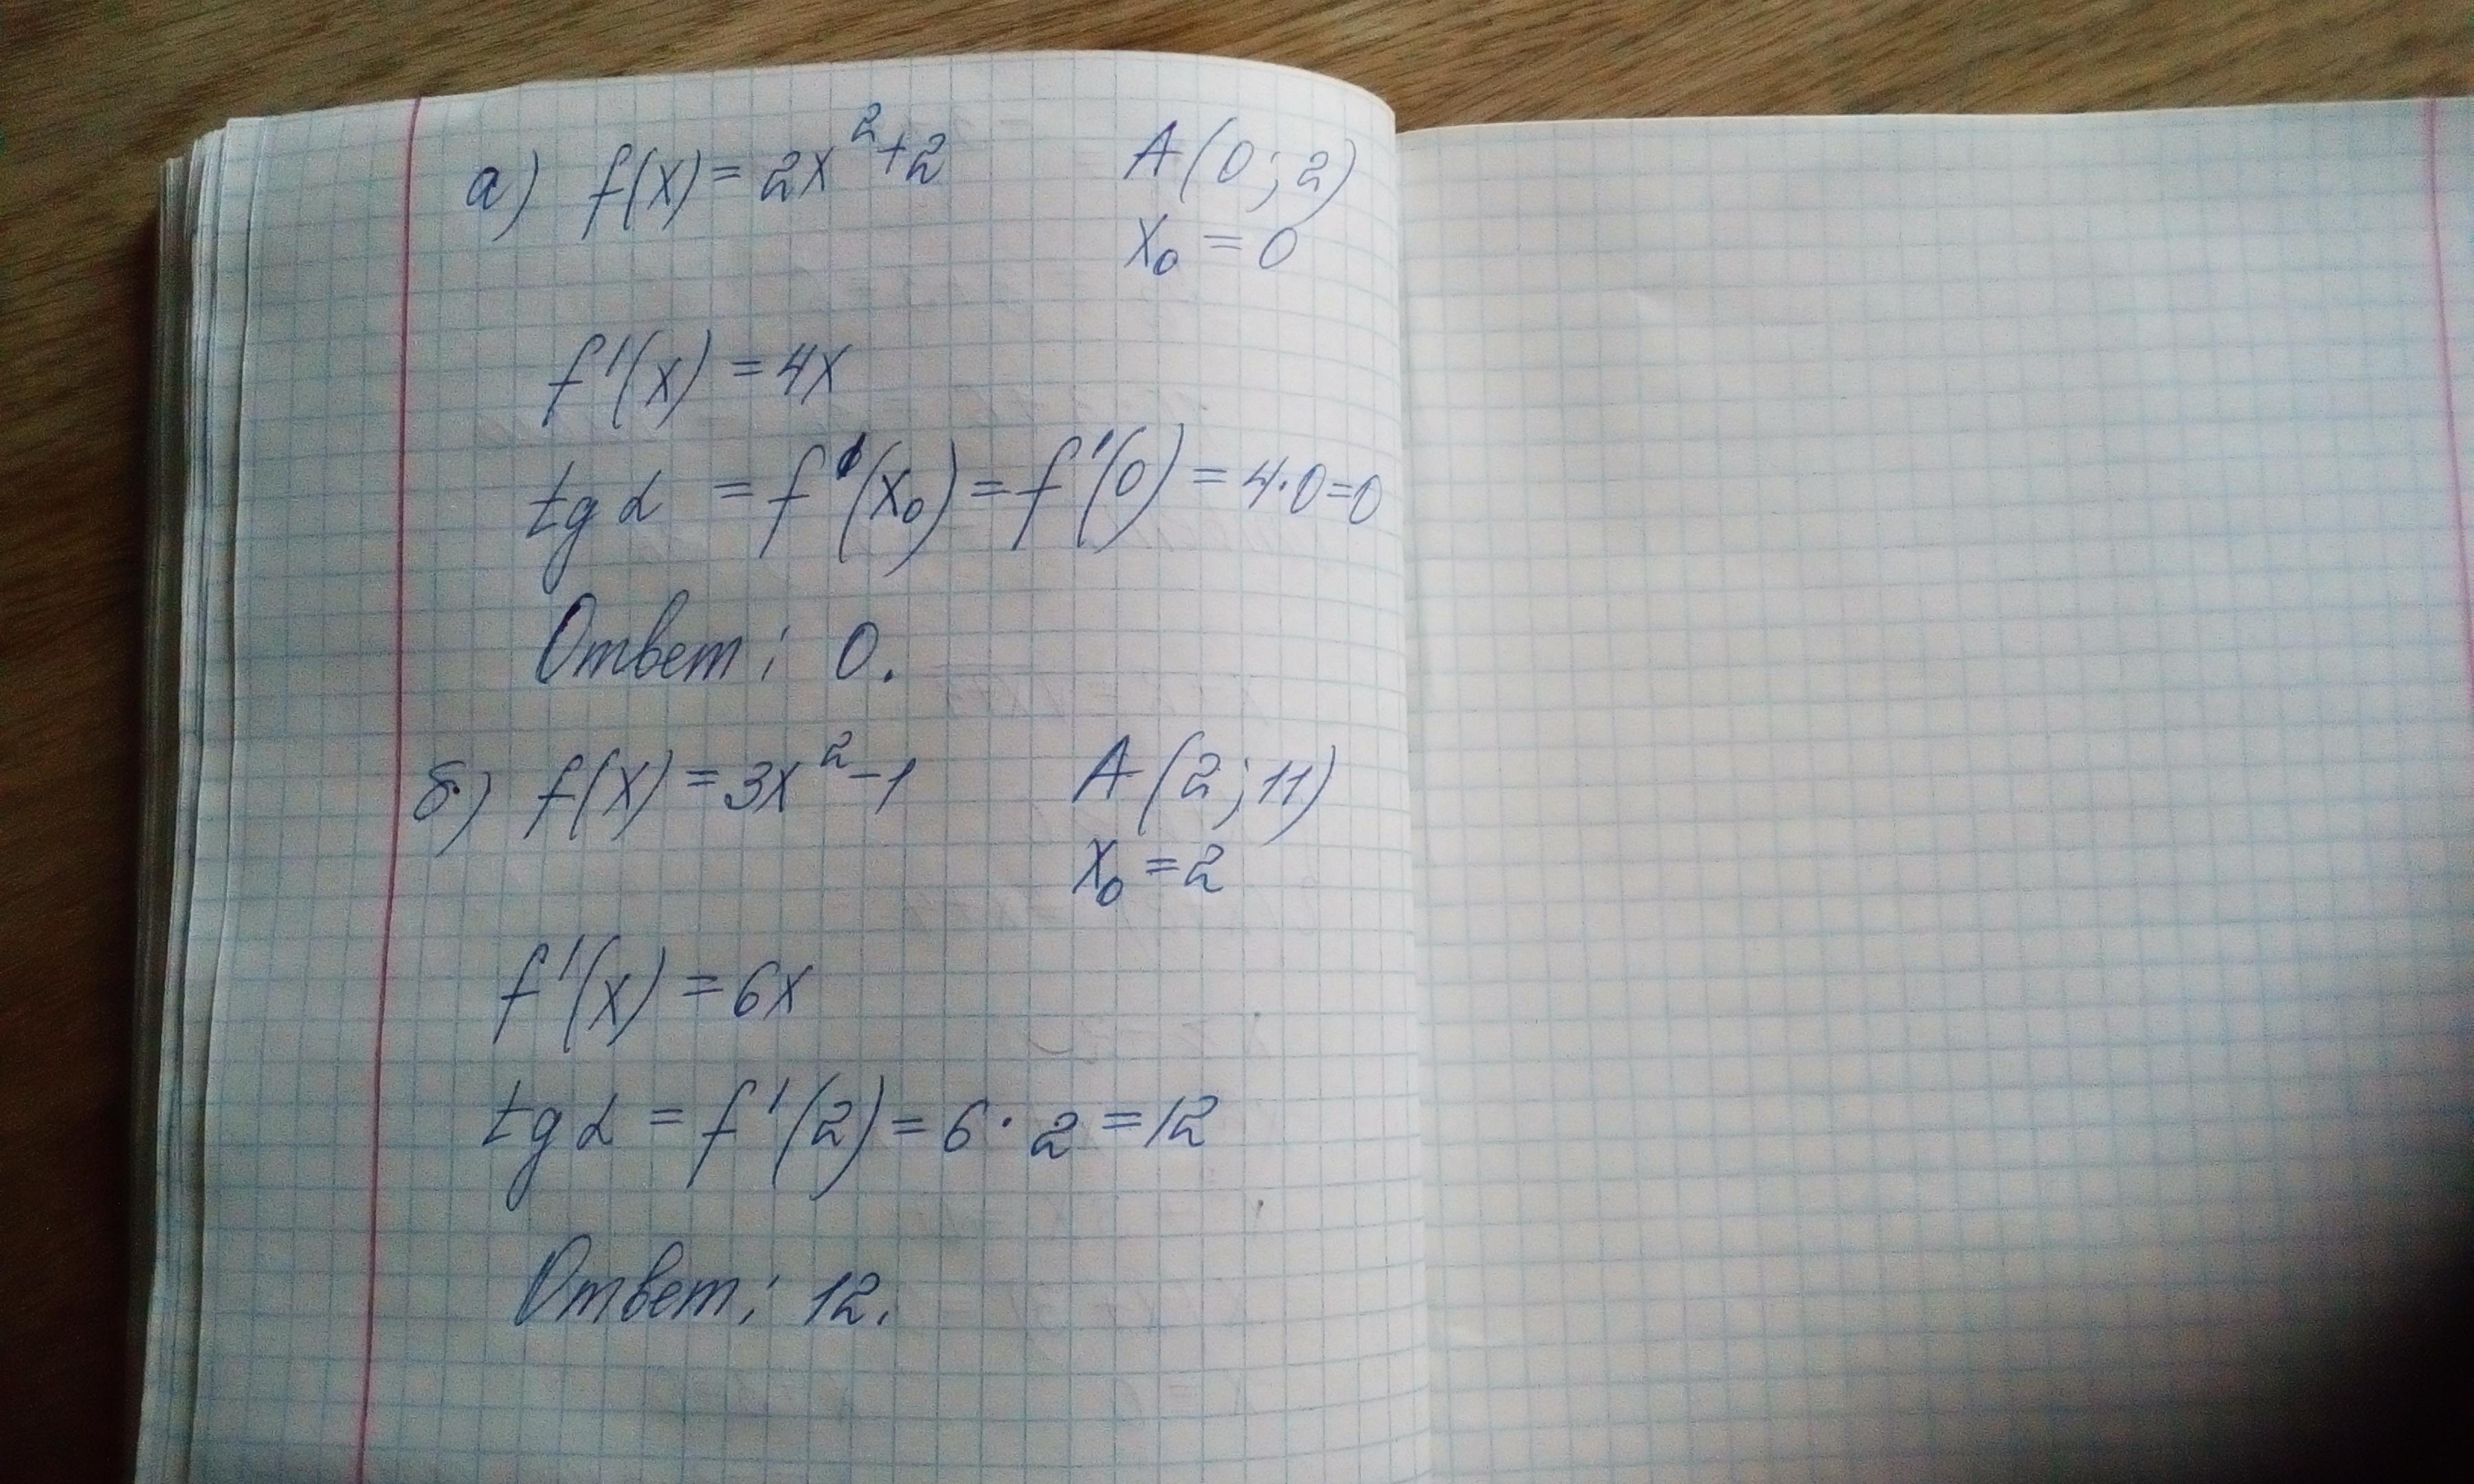 а) f(x) = 2x² + 2 A(0; 2)
x₀ = 0
f'(x) = 4x
tg α = f'(x₀) = f'(0) = 4·0=0
Ответ: 0.
б) f(x) = 3x² - 1 A(2; 11)
x₀ = 2
f'(x) = 6x
tg α = f'(2) = 6 · 2 = 12
Ответ: 12.